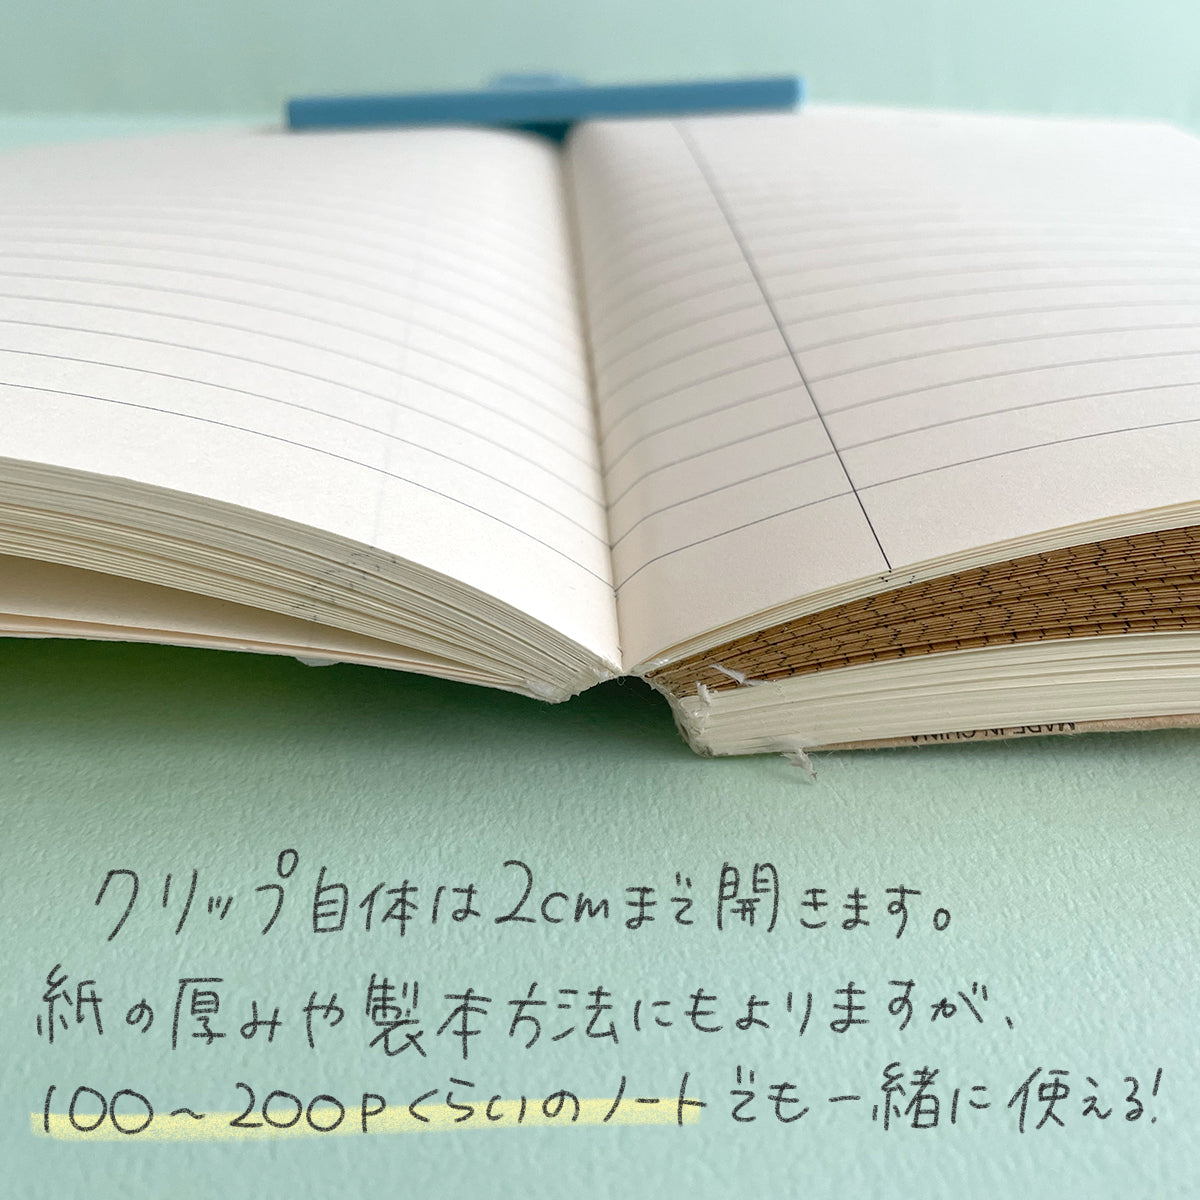 MADE IN CHINA
クリップ自体は2cmまで開きます。
紙の厚みや製本方法にもよりますが、
100～200pくらいのノートでも一緒に使える!